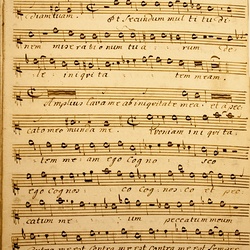 diantuam. Et secundum mul ti tu di
nem mise ra ti o num tu a rum de
le ini qui ta tem meam.
Amplius lava me ab iniqui tate mea, et a pec
cato meo munda me. Quoniam ini qui ta
tem me am ego cog no sco
ego cog nos co cog nos co et pec
catum me um peccatum meum
contra me est contra me est contra me est sem